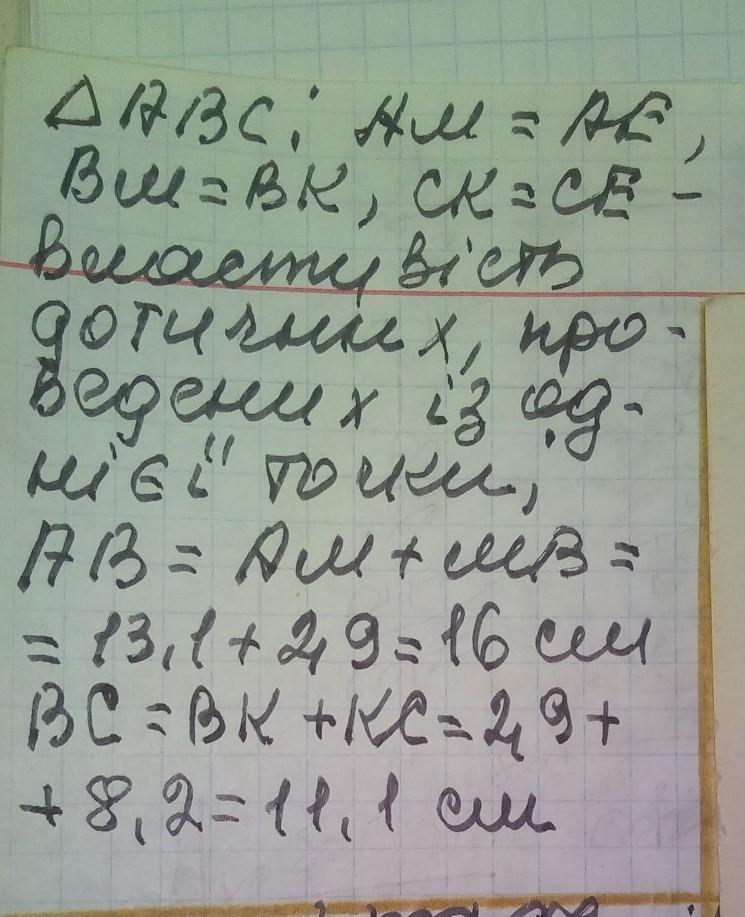 △ABC; AM = AE,
BM = BK, CK = CE -
властивість
дотичних, про-
ведених із од-
нієї точки,
AB = AM + MB =
= 13,1 + 2,9 = 16 см
BC = BK + KC = 2,9 +
+ 8,2 = 11,1 см